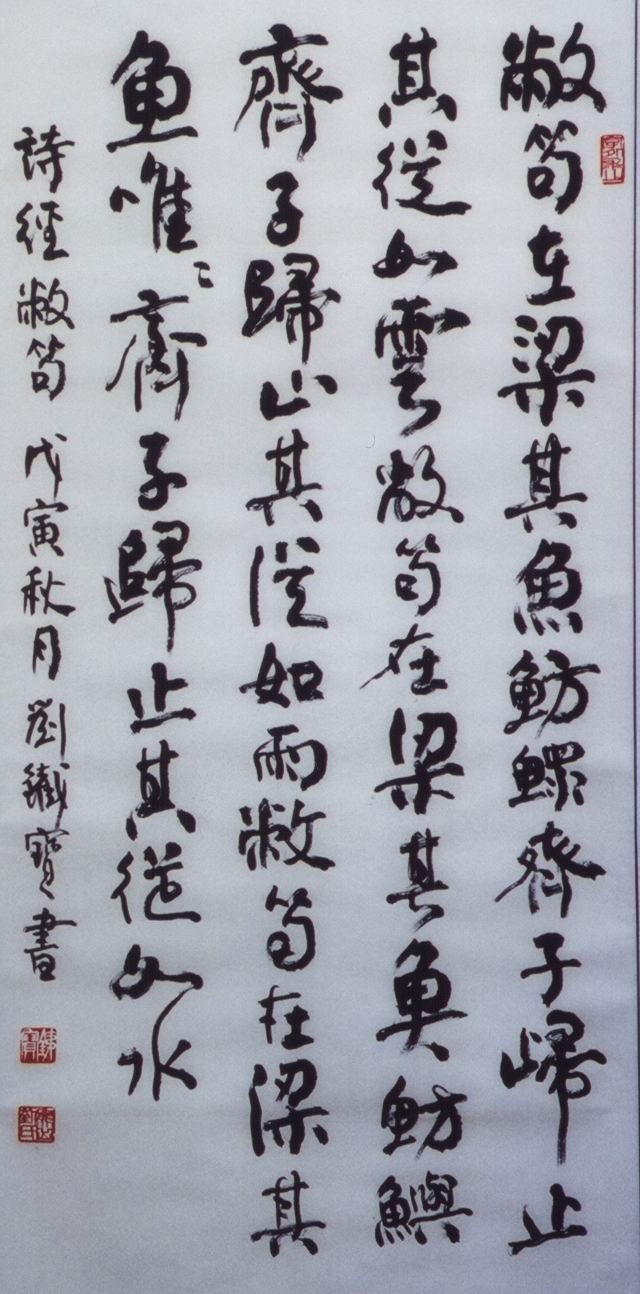 敝笱在梁其魚魴鰥齊子歸止
其從如雲敝笱在梁其魚魴鱮
齊子歸止其從如雨敝笱在梁其
魚唯〻齊子歸止其從如水
詩經敝笱 戊寅秋月劉鐵寶書